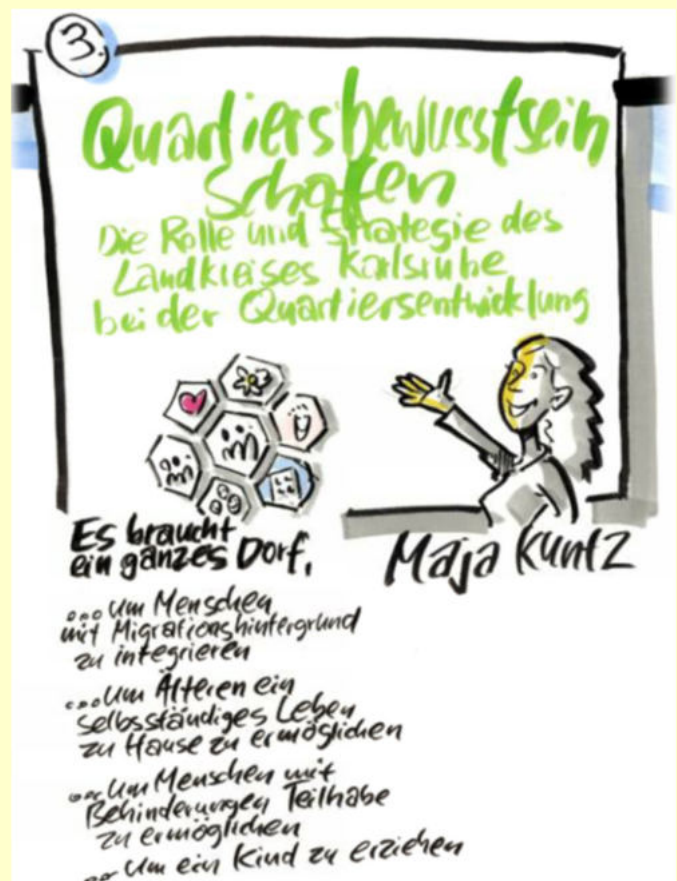 3.
Quartiersbewusstsein
schaffen
Die Rolle und Strategie des
Landkreises Karlsruhe
bei der Quartiersentwicklung
Es braucht
ein ganzes Dorf,
Maja Kuntz
...um Menschen
mit Migrationshintergrund
zu integrieren
...um Älteren ein
selbsständiges Leben
zu Hause zu ermöglichen
...um Menschen mit
Behinderungen Teilhabe
zu ermöglichen
...um ein Kind zu erziehen